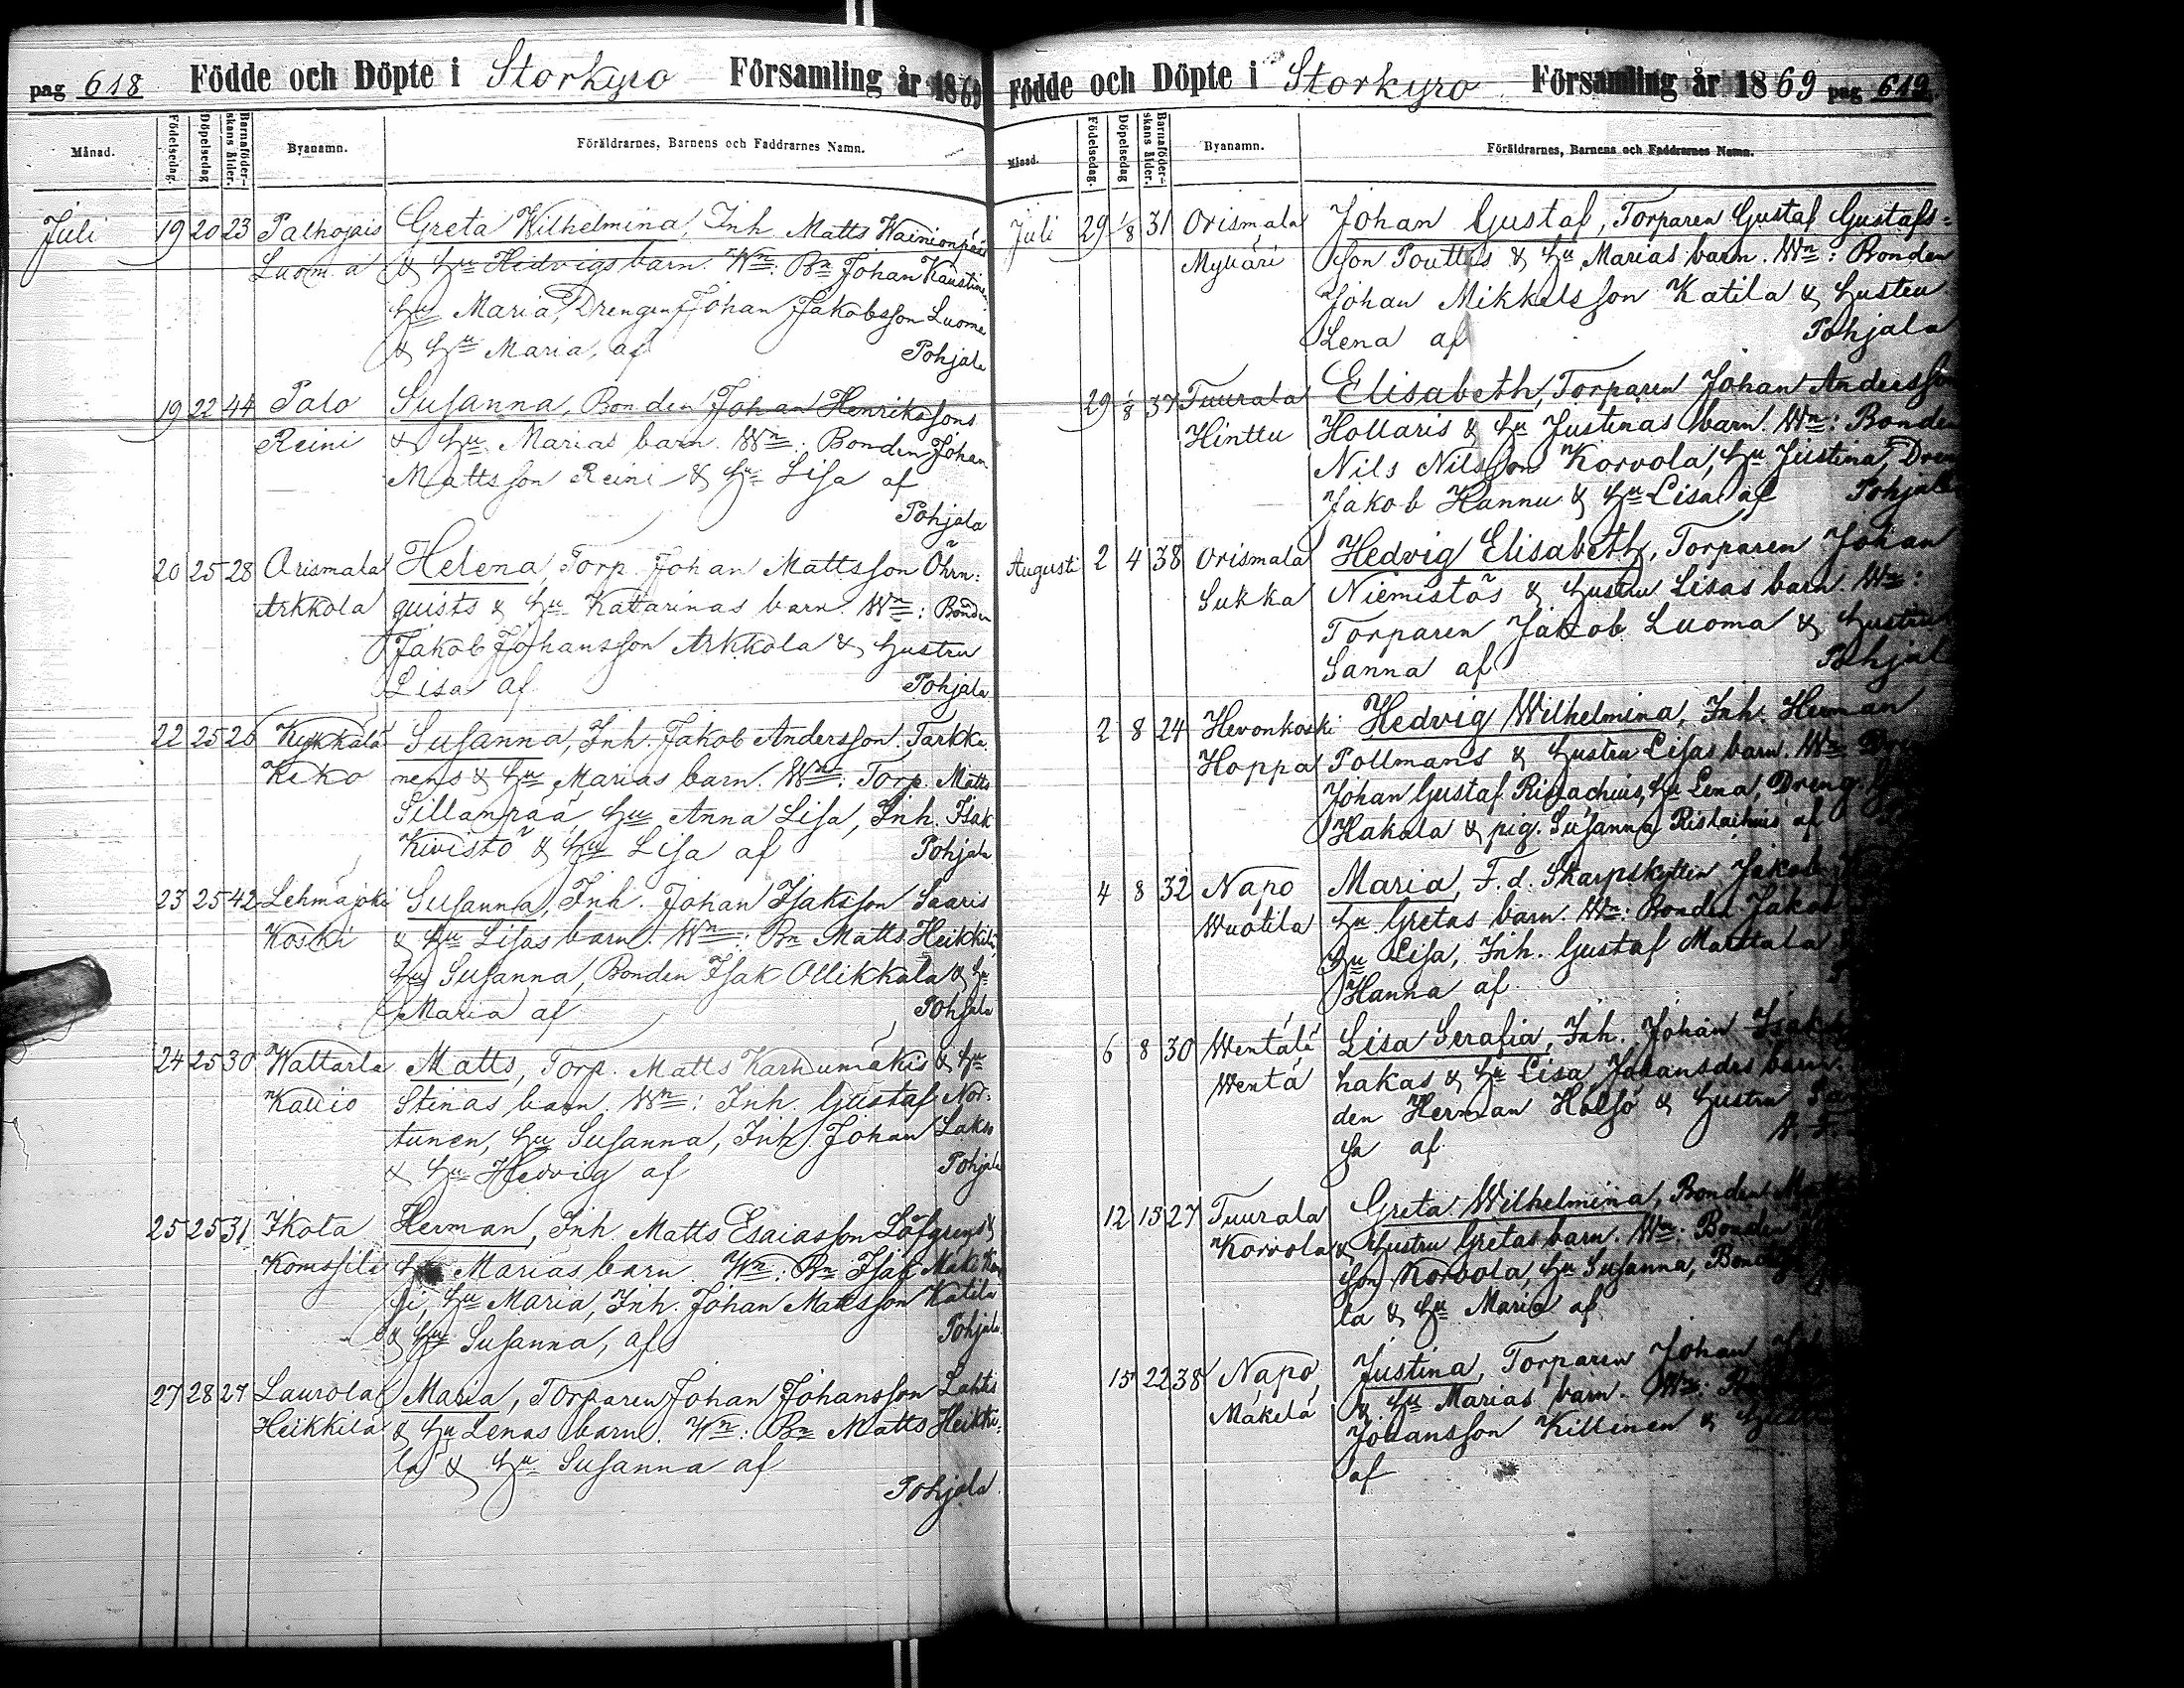 pag 618 Födde och Döpte i Storkyro Församling år 1869
Månad. Födelsedag. Döpelsedag Barnaföderskans ålder. Byanamn. Föräldrarnes, Barnens och Faddrarnes Namn.
Juli 19 20 23 Palhojais Greta Wilhelmina, Inh Matts Wainionpäis
Luoma & Hu Hedvigs barn. Wn: Bn Johan Kaustinen
Hu Maria, Drengen Johan Jakobsson Luoma
& Hu Maria, af Pohjala
19 22 44 Palo Susanna, Bonden Johan Henrikssons
Reini & Hu Marias barn. Wn: Bonden Johan
Mattsson Reini & Hu Lisa af
Pohjala
20 25 28 Orismala Helena, Torp. Johan Mattsson Öhrn:
Arkkola quists & Hu Katarinas barn. Wn: Bonden
Jakob Johansson Arkkola & Hustru
Lisa af Pohjala
22 25 26 Kykkälä Susanna, Inh. Jakob Andersson Tarkka
Keko nens & Hu Marias barn. Wn: Torp. Matts
Sillanpää, Hu Anna Lisa, Inh. Isak
Kivistö & Hu Lisa af Pohjala
23 25 42 Lehmäjoki Susanna, Inh. Johan Isaksson Saaris
Koski & Hu Lisas barn. Wn: Bn Matts Heikkilä,
Hu Susanna, Bonden Isak Ollikkala & Hu
Maria af Pohjala
24 25 30 Wattarla Matts, Torp. Matts Karhumäkis & Hu
Kauio Stinas barn. Wn: Inh. Gustaf Nor-
tunen, Hu Susanna, Inh. Johan Lakso
& Hu Hedvig af Pohjala
25 25 31 Ikola Herman, Inh. Matts Esaiasson Löfgrens &
Komssile Hu Marias barn. Wn: Bn Isak Mäki Kom
si, Hu Maria, Inh. Johan Mattsson Katila
& Hu Susanna, af Pohjala
27 28 27 Laurola Maria, Torparen Johan Johansson Lahtis
Heikkilä & Hu Lenas barn. Wn: Bn Matts Heikki-
lä & Hu Susanna af
Pohjala
Födde och Döpte i Storkyro Församling år 1869 pag 619.
Månad. Födelsedag. Döpelsedag Barnaföderskans ålder. Byanamn. Föräldrarnes, Barnens och Faddrarnes Namn.
Juli 29 1/8 31 Orismala Johan Gustaf, Torparen Gustaf Gustafs-
Mykäri son Pouttus & Hu Marias barn. Wn: Bonden
Johan Mikkelsson Katila & Hustru
Lena af Pohjala
29 1/8 37 Tuurala Elisabeth, Torparen Johan Andersson
Hinttu Hollaris & Hu Justinas barn. Wn: Bonden
Nils Nilsson Korvola, Hu Justina, Dren
Jakob Hannu & Hu Lisa af Pohjala
Augusti 2 4 38 Orismala Hedvig Elisabeth, Torparen Johan
Sukka Niemistös & Hustru Lisas barn. Wn:
Torparen Jakob Luoma & Hustru
Sanna af Pohjala
2 8 24 Hevonkoski Hedvig Wilhelmina, Inh. Herman
Hoppa Pollmans & Hustru Lisas barn. Wn
Johan Gustaf Hu Lena, Dreng.
Hakala & pig. Susanna af
4 8 32 Napo Maria, F. d. Skarpskytten Jakob
Wuotila Hu Gretas barn. Wn: Bonden Jakob
Hu Lisa, Inh. Gustaf Marttala
Hanna af
6 8 30 Wentälä Lisa Serafia, Inh. Johan Isak
Wentä hakas & Hu Lisa Johansdrs barn.
den Herman Holsö & Hustru
sa af
12 15 27 Tuurala Greta Wilhelmina, Bonden
Korvola & Hustru Gretas barn. Wn. Bonden
son Korvola, Hu Susanna, Bonden
la & Hu Maria af
15 22 38 Napo Justina, Torparen Johan
Mäkelä & Hu Marias barn. Wn:
Johansson Killinen &
af